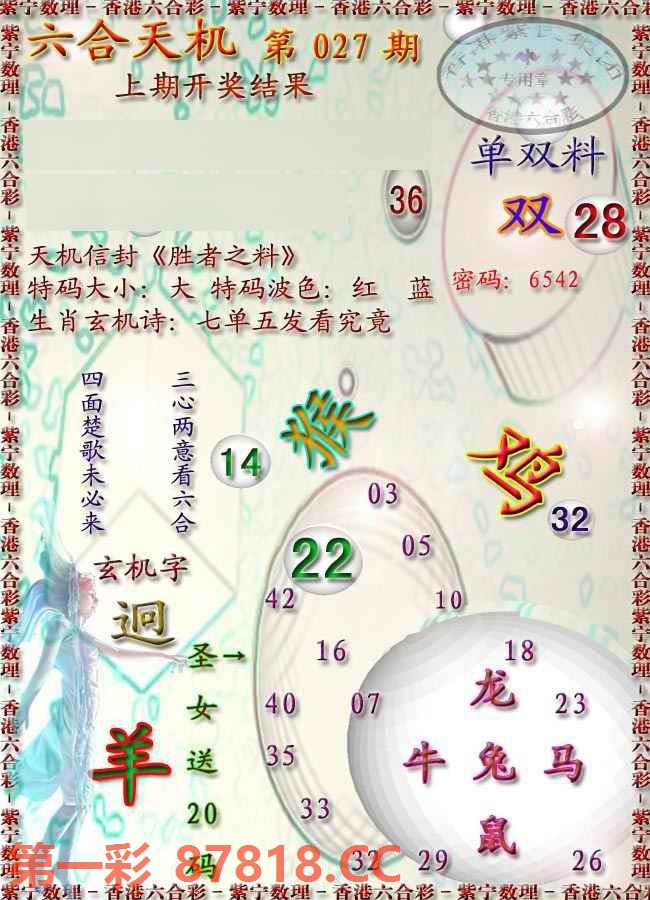 紫宁数理－香港六合彩－紫宁数理－香港六合彩－紫宁数理－香港六合彩
六合天机 第 027 期
上期开奖结果
专用章
香港六合彩
单双料
36
双 28
天机信封《胜者之料》
特码大小：大 特码波色：红 蓝
密码：6542
生肖玄机诗：七单五发看究竟
三心两意看六合
四面楚歌未必来
猴
14
鸡
32
03
22
05
玄机字
42
10
迥
圣→
16
18
龙
女
40
07
23
羊
送
35
牛 兔 马
20
33
鼠
码
32
29
26
第一彩 87818.CC
紫宁数理－香港六合彩－紫宁数理－香港六合彩－紫宁数理－香港六合彩